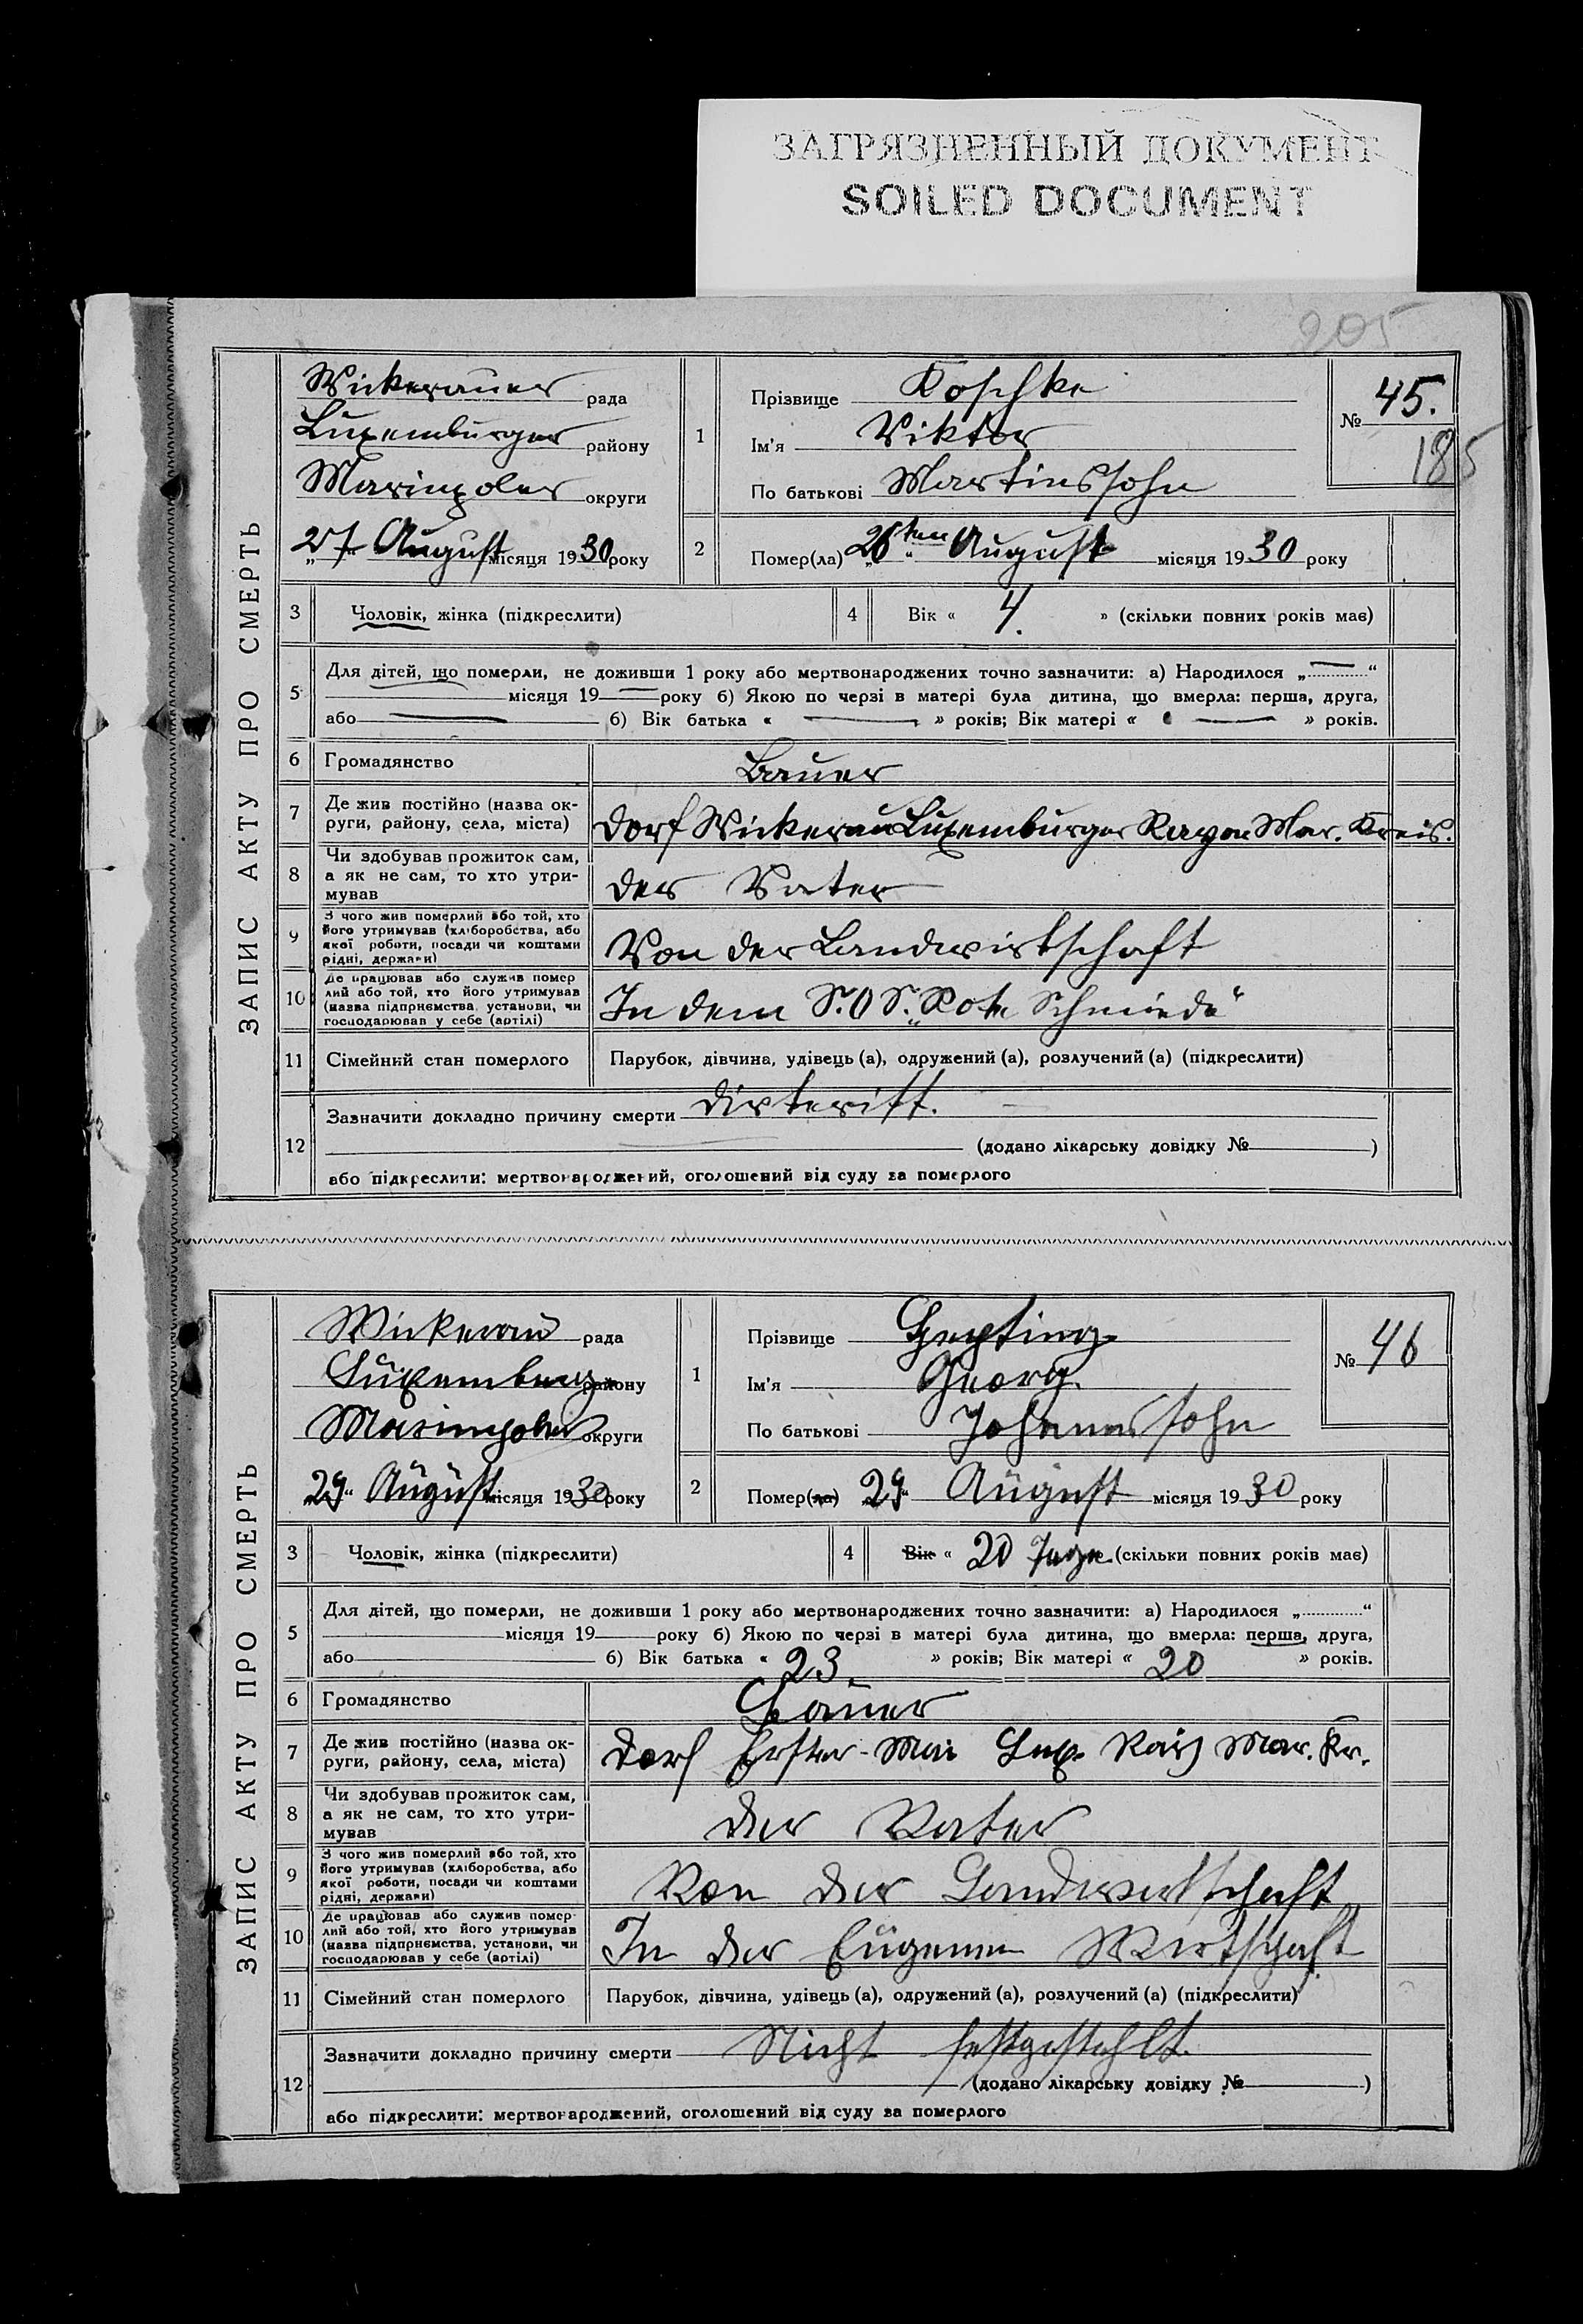 ЗАГРЯЗНЕННЫЙ ДОКУМЕНТ
SOILED DOCUMENT
205
ЗАПИС АКТУ ПРО СМЕРТЬ
Wickerauer рада
Luxemburger району
Mariupoler округи
„27“ August місяця 1930 року
1
Прізвище Koschke
Ім'я Viktor
По батькові Martinssohn
№ 45.
185
2
Помер(ла) „26ten“ August місяця 1930 року
3 Чоловік, жінка (підкреслити)
4 Вік « 4. » (скільки повних років має)
5 Для дітей, що померли, не доживши 1 року або мертвонароджених точно зазначити: а) Народилося „ — “
місяця 19 — року б) Якою по черзі в матері була дитина, що вмерла: перша, друга,
або — б) Вік батька « — » років; Вік матері « — » років.
6 Громадянство Bauer
7 Де жив постійно (назва ок-
руги, району, села, міста) Dorf Wickerau Luxemburger Rayon Mar. Kreis.
8 Чи здобував прожиток сам,
а як не сам, то хто утри-
мував der Vater
9 З чого жив померлий або той, хто
його утримував (хліборобства, або
якої роботи, посади чи коштами
рідні, держави) Von der Landwirtschaft
10 Де працював або служив помер
лий або той, хто його утримував
(назва підприємства, установи, чи
господарював у себе (артілі) In dem S.O.S. „Rote Schmiede“
11 Сімейний стан померлого Парубок, дівчина, удівець (а), одружений (а), розлучений (а) (підкреслити)
12 Зазначити докладно причину смерти Dixteritt.
(додано лікарську довідку № )
або підкреслити: мертвонароджений, оголошений від суду за померлого
ЗАПИС АКТУ ПРО СМЕРТЬ
Wickerau рада
Luxemburg району
Mariupoler округи
„29“ August місяця 1930 року
1
Прізвище
Ім'я Georg
По батькові Johannssohn
№ 46
2
Помер(ла) „29“ August місяця 1930 року
3 Чоловік, жінка (підкреслити)
4 Вік « 20 Tage (скільки повних років має)
5 Для дітей, що померли, не доживши 1 року або мертвонароджених точно зазначити: а) Народилося „ “
місяця 19 року б) Якою по черзі в матері була дитина, що вмерла: перша, друга,
або б) Вік батька « 23 » років; Вік матері « 20 » років.
6 Громадянство Bauer
7 Де жив постійно (назва ок-
руги, району, села, міста) Dorf Erster-Mai Lux. Mar. Kr.
8 Чи здобував прожиток сам,
а як не сам, то хто утри-
мував der Vater
9 З чого жив померлий або той, хто
його утримував (хліборобства, або
якої роботи, посади чи коштами
рідні, держави) Von der Landwirtschaft
10 Де працював або служив помер-
лий або той, хто його утримував
(назва підприємства, установи, чи
господарював у себе (артілі) In der Eugenen Wirtschaft
11 Сімейний стан померлого Парубок, дівчина, удівець (а), одружений (а), розлучений (а) (підкреслити)
12 Зазначити докладно причину смерти Nicht festgestehlt.
(додано лікарську довідку № )
або підкреслити: мертвонароджений, оголошений від суду за померлого